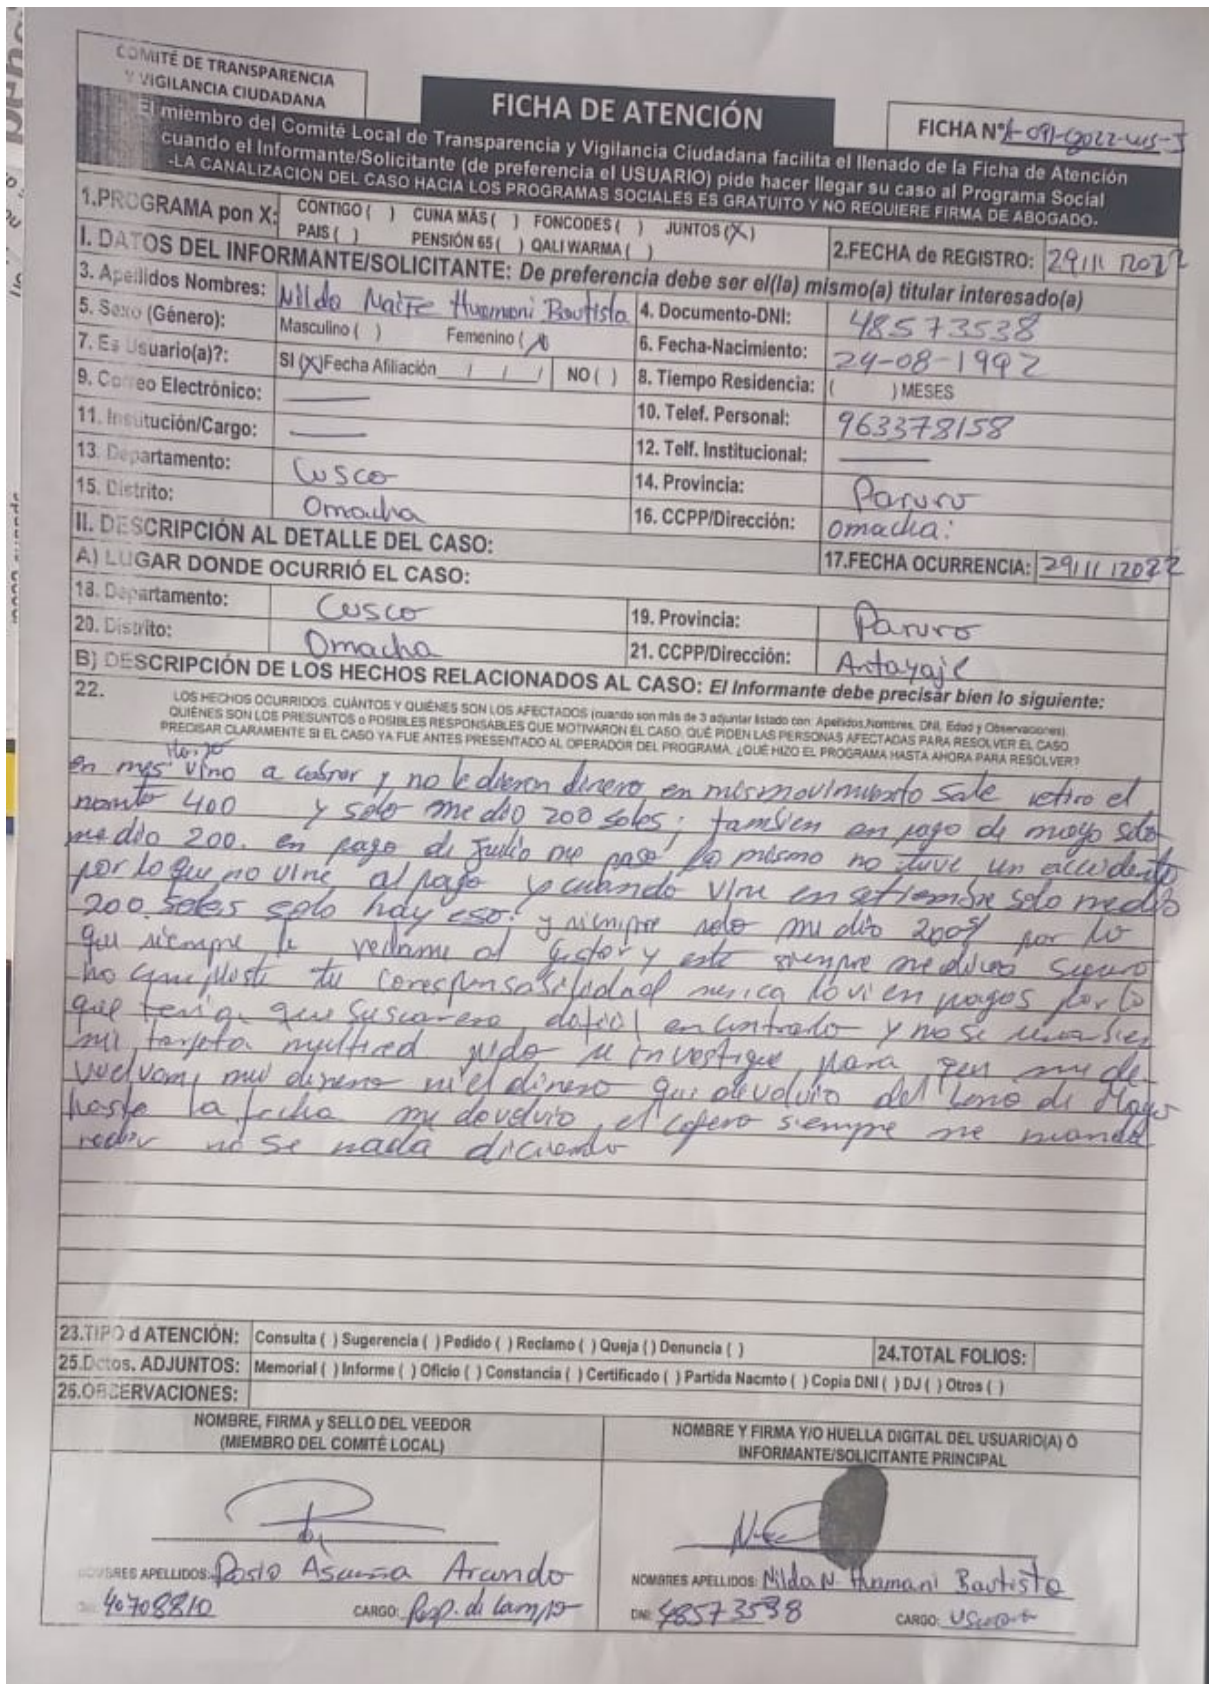 COMITÉ DE TRANSPARENCIA
Y VIGILANCIA CIUDADANA
FICHA DE ATENCIÓN
FICHA N°
El miembro del Comité Local de Transparencia y Vigilancia Ciudadana facilita el llenado de la Ficha de Atención
cuando el Informante/Solicitante (de preferencia el USUARIO) pide hacer llegar su caso al Programa Social
-LA CANALIZACIÓN DEL CASO HACIA LOS PROGRAMAS SOCIALES ES GRATUITO Y NO REQUIERE FIRMA DE ABOGADO-
1.PROGRAMA pon X: CONTIGO ( ) CUNA MÁS ( ) FONCODES ( ) JUNTOS (X)
PAIS ( ) PENSIÓN 65 ( ) QALI WARMA ( )
2.FECHA de REGISTRO: 29/11/2022
I. DATOS DEL INFORMANTE/SOLICITANTE: De preferencia debe ser el(la) mismo(a) titular interesado(a)
3. Apellidos Nombres: Nilda Huamani Bautista 4. Documento-DNI: 48573538
5. Sexo (Género): Masculino ( ) Femenino (X) 6. Fecha-Nacimiento: 24-08-1992
7. Es Usuario(a)?: SI (X) Fecha Afiliación / / / NO ( ) 8. Tiempo Residencia: ( ) MESES
9. Correo Electrónico: —— 10. Telef. Personal: 963378158
11. Institución/Cargo: —— 12. Telf. Institucional: ——
13. Departamento: Cusco 14. Provincia: Paruro
15. Distrito: Omacha 16. CCPP/Dirección: Omacha:
II. DESCRIPCIÓN AL DETALLE DEL CASO: 17.FECHA OCURRENCIA: 29/11/2022
A) LUGAR DONDE OCURRIÓ EL CASO:
18. Departamento: Cusco 19. Provincia: Paruro
20. Distrito: Omacha 21. CCPP/Dirección:
B) DESCRIPCIÓN DE LOS HECHOS RELACIONADOS AL CASO: El Informante debe precisar bien lo siguiente:
22. LOS HECHOS OCURRIDOS. CUÁNTOS Y QUIÉNES SON LOS AFECTADOS (cuando son más de 3 adjuntar listado con: Apellidos,Nombres, DNI, Edad y Observaciones).
QUIÉNES SON LOS PRESUNTOS o POSIBLES RESPONSABLES QUE MOTIVARON EL CASO. QUÉ PIDEN LAS PERSONAS AFECTADAS PARA RESOLVER EL CASO
PRECISAR CLARAMENTE SI EL CASO YA FUE ANTES PRESENTADO AL OPERADOR DEL PROGRAMA. ¿QUÉ HIZO EL PROGRAMA HASTA AHORA PARA RESOLVER?
en mes vino a cobrar y no le dieron dinero en mismovimiento sale retiro el
monto 400 y solo me dio 200 soles; tambien en pago de mayo solo
me dio 200. en pago de Julio me paso lo mismo no tuve un accidente
por lo que no vine al pago y cuando vine en setiembre solo medio
200. soles solo hay eso; y siempre solo me dio 200 por lo
que siempre le reclame al gestor y este siempre me dice seguro
no cumpliste tu corresponsabilidad nunca lo vi en pagos por lo
que tenia que
mi tarjeta multired pido se investigue para que me de-
vuelvan mi dinero ni el dinero que devolvio del bono de Mayo
hasta la fecha me devolvio, el cajero siempre me manda
no se nada diciendo
23.TIPO d ATENCIÓN: Consulta ( ) Sugerencia ( ) Pedido ( ) Reclamo ( ) Queja ( ) Denuncia ( ) 24.TOTAL FOLIOS:
25.Dctos. ADJUNTOS: Memorial ( ) Informe ( ) Oficio ( ) Constancia ( ) Certificado ( ) Partida Nacmto ( ) Copia DNI ( ) DJ ( ) Otros ( )
26.OBSERVACIONES:
NOMBRE, FIRMA y SELLO DEL VEEDOR
(MIEMBRO DEL COMITÉ LOCAL)
NOMBRE Y FIRMA Y/O HUELLA DIGITAL DEL USUARIO(A) Ó
INFORMANTE/SOLICITANTE PRINCIPAL
NOMBRES APELLIDOS:
DNI: 40708810 CARGO: Resp. de campo
NOMBRES APELLIDOS: Nilda N. Huamani Bautista
DNI: 48573538 CARGO: Usuaria